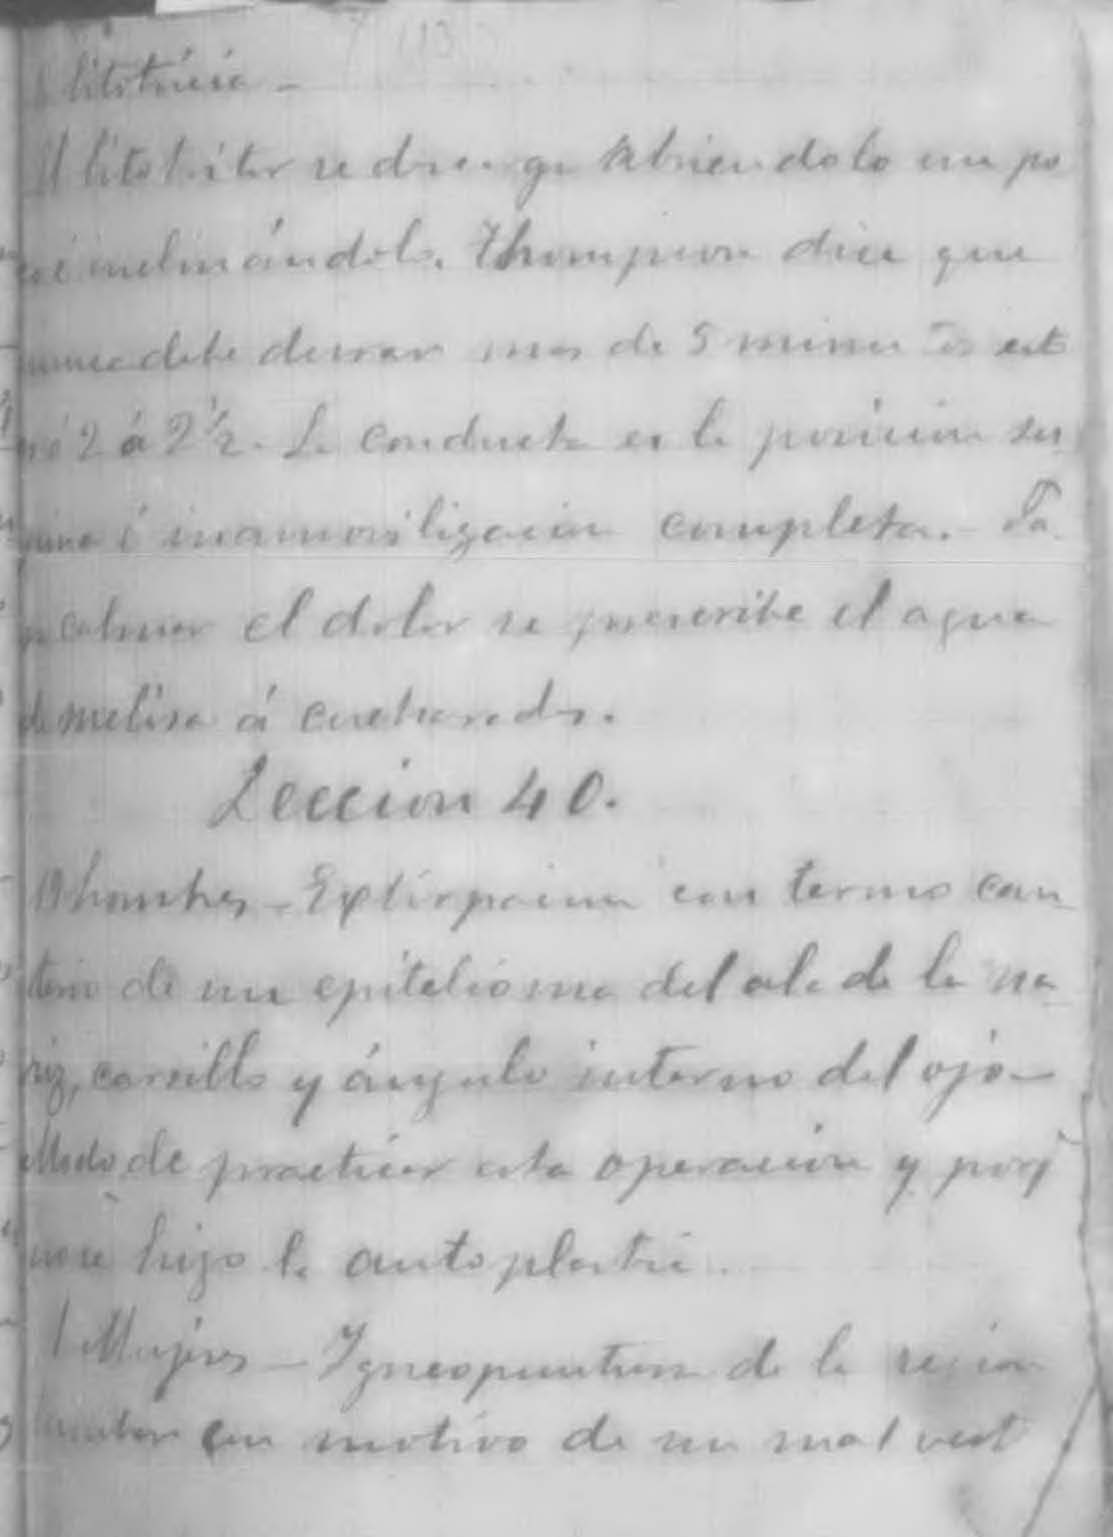 113
litotricia -
El litotritor se descarga abriendolo un po
co é inclinándolo. Thompson dice que
nunca debe durar mas de 5 minutos este
2 á 2 1/2. La conducta es la posicion su
pina é inamovilizacion completa. - Pa
ra calmar el dolor se prescribe el agua
de melisa á cucharadas.
Leccion 40.
hombres - Extirpacion con termo cau
terio de un epitelioma del ala de la na
riz, carrillo y ángulo interno del ojo -
Modo de practicar esta operacion y porq
no se hizo la autoplastia.
1 Mujeres - Igneopuntura de la region
lumbar con motivo de un mal vert